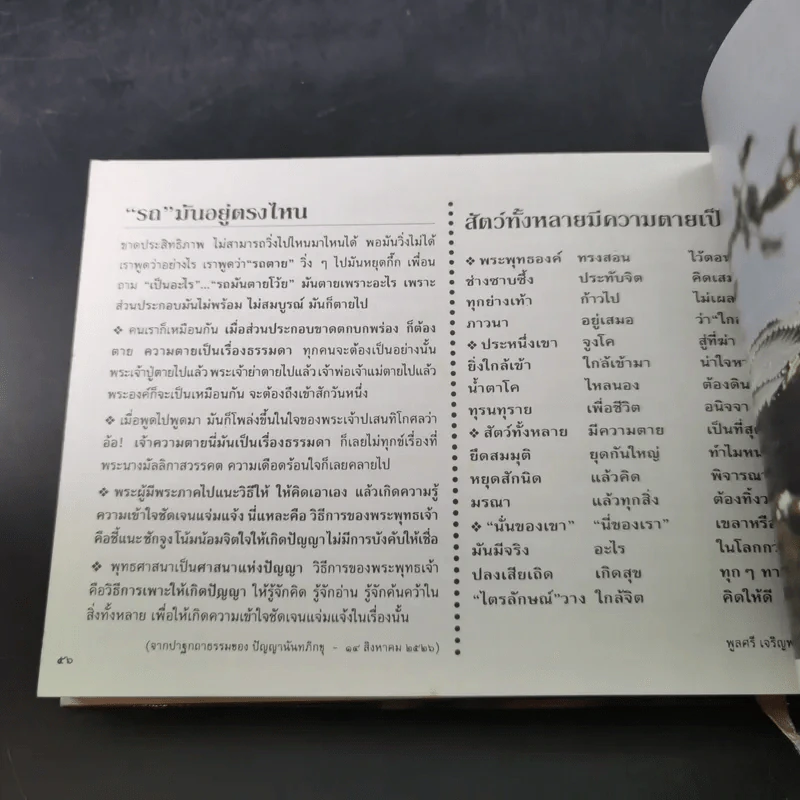 “รถ”มันอยู่ตรงไหน
ขาดประสิทธิภาพ ไม่สามารถวิ่งไปไหนมาไหนได้ พอมันวิ่งไม่ได้
เราพูดว่าอย่างไร เราพูดว่า“รถตาย” วิ่ง ๆ ไปมันหยุดกึ๊ก เพื่อน
ถาม “เป็นอะไร”...“รถมันตายโว้ย” มันตายเพราะอะไร เพราะ
ส่วนประกอบมันไม่พร้อม ไม่สมบูรณ์ มันก็ตายไป
❖ คนเราก็เหมือนกัน เมื่อส่วนประกอบขาดตกบกพร่อง ก็ต้อง
ตาย ความตายเป็นเรื่องธรรมดา ทุกคนจะต้องเป็นอย่างนั้น
พระเจ้าปู่ตายไปแล้ว พระเจ้าย่าตายไปแล้ว เจ้าพ่อเจ้าแม่ตายไปแล้ว
พระองค์ก็จะเป็นเหมือนกัน จะต้องถึงเข้าสักวันหนึ่ง
❖ เมื่อพูดไปพูดมา มันก็โพล่งขึ้นในใจของพระเจ้าปเสนทิโกศลว่า
อ้อ! เจ้าความตายนี่มันเป็นเรื่องธรรมดา ก็เลยไม่ทุกข์เรื่องที่
พระนางมัลลิกาสวรรคต ความเดือดร้อนใจก็เลยคลายไป
❖ พระผู้มีพระภาคไปแนะวิธีให้ ให้คิดเอาเอง แล้วเกิดความรู้
ความเข้าใจชัดเจนแจ่มแจ้ง นี่แหละคือ วิธีการของพระพุทธเจ้า
คือชี้แนะชักจูงโน้มน้อมจิตใจให้เกิดปัญญาไม่มีการบังคับให้เชื่อ
❖ พุทธศาสนาเป็นศาสนาแห่งปัญญา วิธีการของพระพุทธเจ้า
คือวิธีการเพาะให้เกิดปัญญา ให้รู้จักคิด รู้จักอ่าน รู้จักค้นคว้าใน
สิ่งทั้งหลาย เพื่อให้เกิดความเข้าใจชัดเจนแจ่มแจ้งในเรื่องนั้น
(จากปาฐกถาธรรมของ ปัญญานันทภิกขุ - ๑๔ สิงหาคม ๒๕๒๖)
๕๖
สัตว์ทั้งหลายมีความตายเป็
❖ พระพุทธองค์ ทรงสอน ไว้ตอน
ช่างซาบซึ้ง ประทับจิต คิดเสม
ทุกย่างเท้า ก้าวไป ไม่เผล
ภาวนา อยู่เสมอ ว่า“ใกล
❖ ประหนึ่งเขา จูงโค สู่ที่ฆ่า
ยิ่งใกล้เข้า ใกล้เข้ามา น่าใจหา
น้ำตาโค ไหลนอง ต้องดิน
ทุรนทุราย เพื่อชีวิต อนิจจา
❖ สัตว์ทั้งหลาย มีความตาย เป็นที่สุด
ยึดสมมุติ ยุดกันใหญ่ ทำไมหน
หยุดสักนิด แล้วคิด พิจารณ
มรณา แล้วทุกสิ่ง ต้องทิ้งว
❖ “นั่นของเขา” “นี่ของเรา” เขลาหรือ
มันมีจริง อะไร ในโลกกว
ปลงเสียเถิด เกิดสุข ทุก ๆ ทา
“ไตรลักษณ์”วาง ใกล้จิต คิดให้ดี
พูลศรี เจริญพ